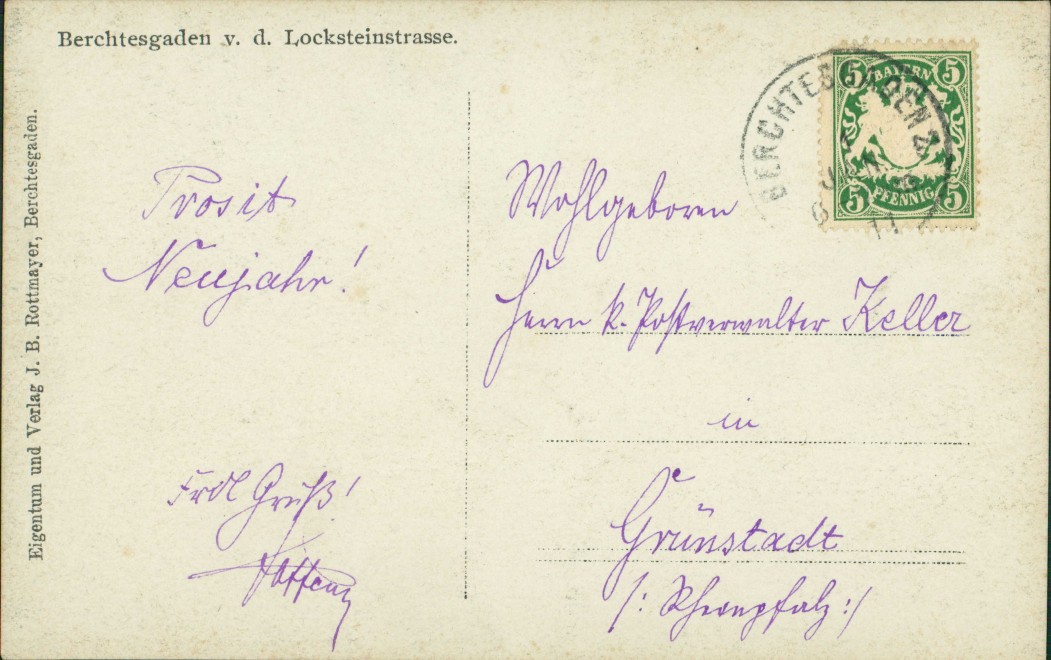 Berchtesgaden v. d. Locksteinstrasse.
Eigentum und Verlag J. B. Rottmayer, Berchtesgaden.
Prosit
Neujahr!
Frdl Gruß!
BERCHTESGADEN 2
5 BAYERN 5
5 PFENNIG 5
Wohlgeboren
Herrn k. Postverwalter Keller
in
Grünstadt
/: Rheinpfalz :/